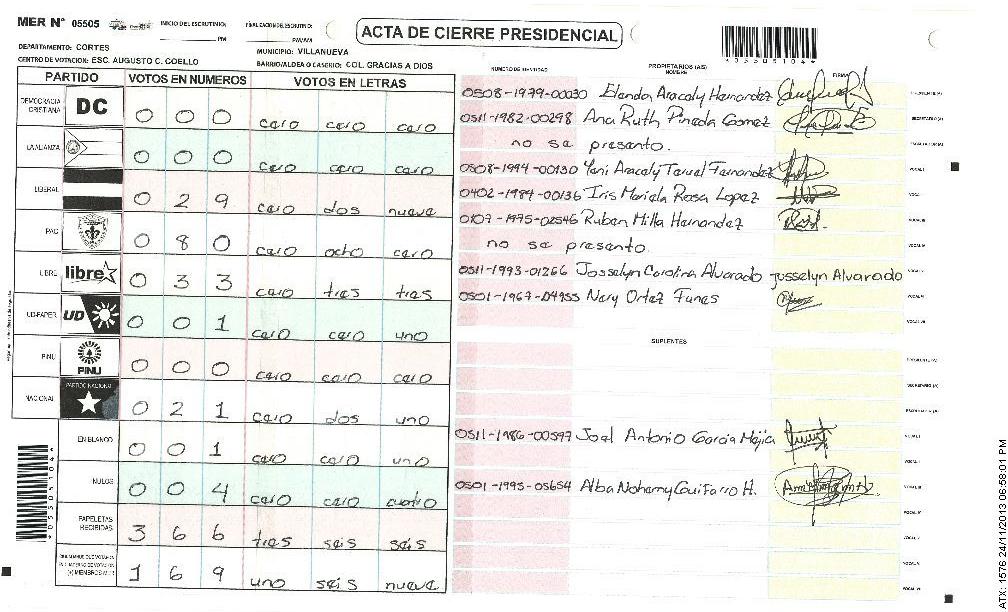 MER N° 05505
INICIO DEL ESCRUTINIO: PM
FINALIZACION DEL ESCRUTINIO: PM/AM
ACTA DE CIERRE PRESIDENCIAL
*05505104*
DEPARTAMENTO: CORTES
MUNICIPIO: VILLANUEVA
CENTRO DE VOTACION: ESC. AUGUSTO C. COELLO
BARRIO/ALDEA O CASERIO: COL. GRACIAS A DIOS
PARTIDO VOTOS EN NUMEROS VOTOS EN LETRAS
DEMOCRACIA CRISTIANA DC 0 0 0 cero cero cero
LA ALIANZA 0 0 0 cero cero cero
LIBERAL 0 2 9 cero dos nueve
PAC 0 8 0 cero ocho cero
LIBRE libre 0 3 3 cero tres tres
UD-FAPER UD 0 0 1 cero cero uno
PINU PINU 0 0 0 cero cero cero
NACIONAL PARTIDO NACIONAL 0 2 1 cero dos uno
EN BLANCO 0 0 1 cero cero uno
NULOS 0 0 4 cero cero cuatro
PAPELETAS RECIBIDAS 3 6 6 tres seis seis
1 6 9 uno seis nueve
NUMERO DE IDENTIDAD PROPIETARIOS (AS) NOMBRE FIRMA
0508-1979-00030 Elenda Aracely Hernandez PRESIDENTE (A)
0511-1982-00298 Ana Ruth Pineda Gomez SECRETARIO (A)
no se presento. ESCRUTADOR (A)
0508-1994-00130 Yeni Aracely Teruel Fernandez VOCAL I
0402-1984-00136 Iris Mariela Rosa Lopez VOCAL II
0107-1975-02546 Ruben Milla Hernandez VOCAL III
no se presento. VOCAL IV
0511-1993-01266 Josselyn Carolina Alvarado Josselyn Alvarado VOCAL V
0501-1967-04955 Nery Ortez Funes VOCAL VI
VOCAL VII
SUPLENTES
PRESIDENTE (A)
SECRETARIO (A)
ESCRUTADOR (A)
0511-1986-00597 Joel Antonio Garcia Mejia VOCAL I
VOCAL II
0501-1995-05654 Alba Nohemy Guifarro H. VOCAL III
VOCAL IV
VOCAL V
VOCAL VI
VOCAL VII
*05505104*
ATX: 1576 24/11/2013 06:58:01 PM